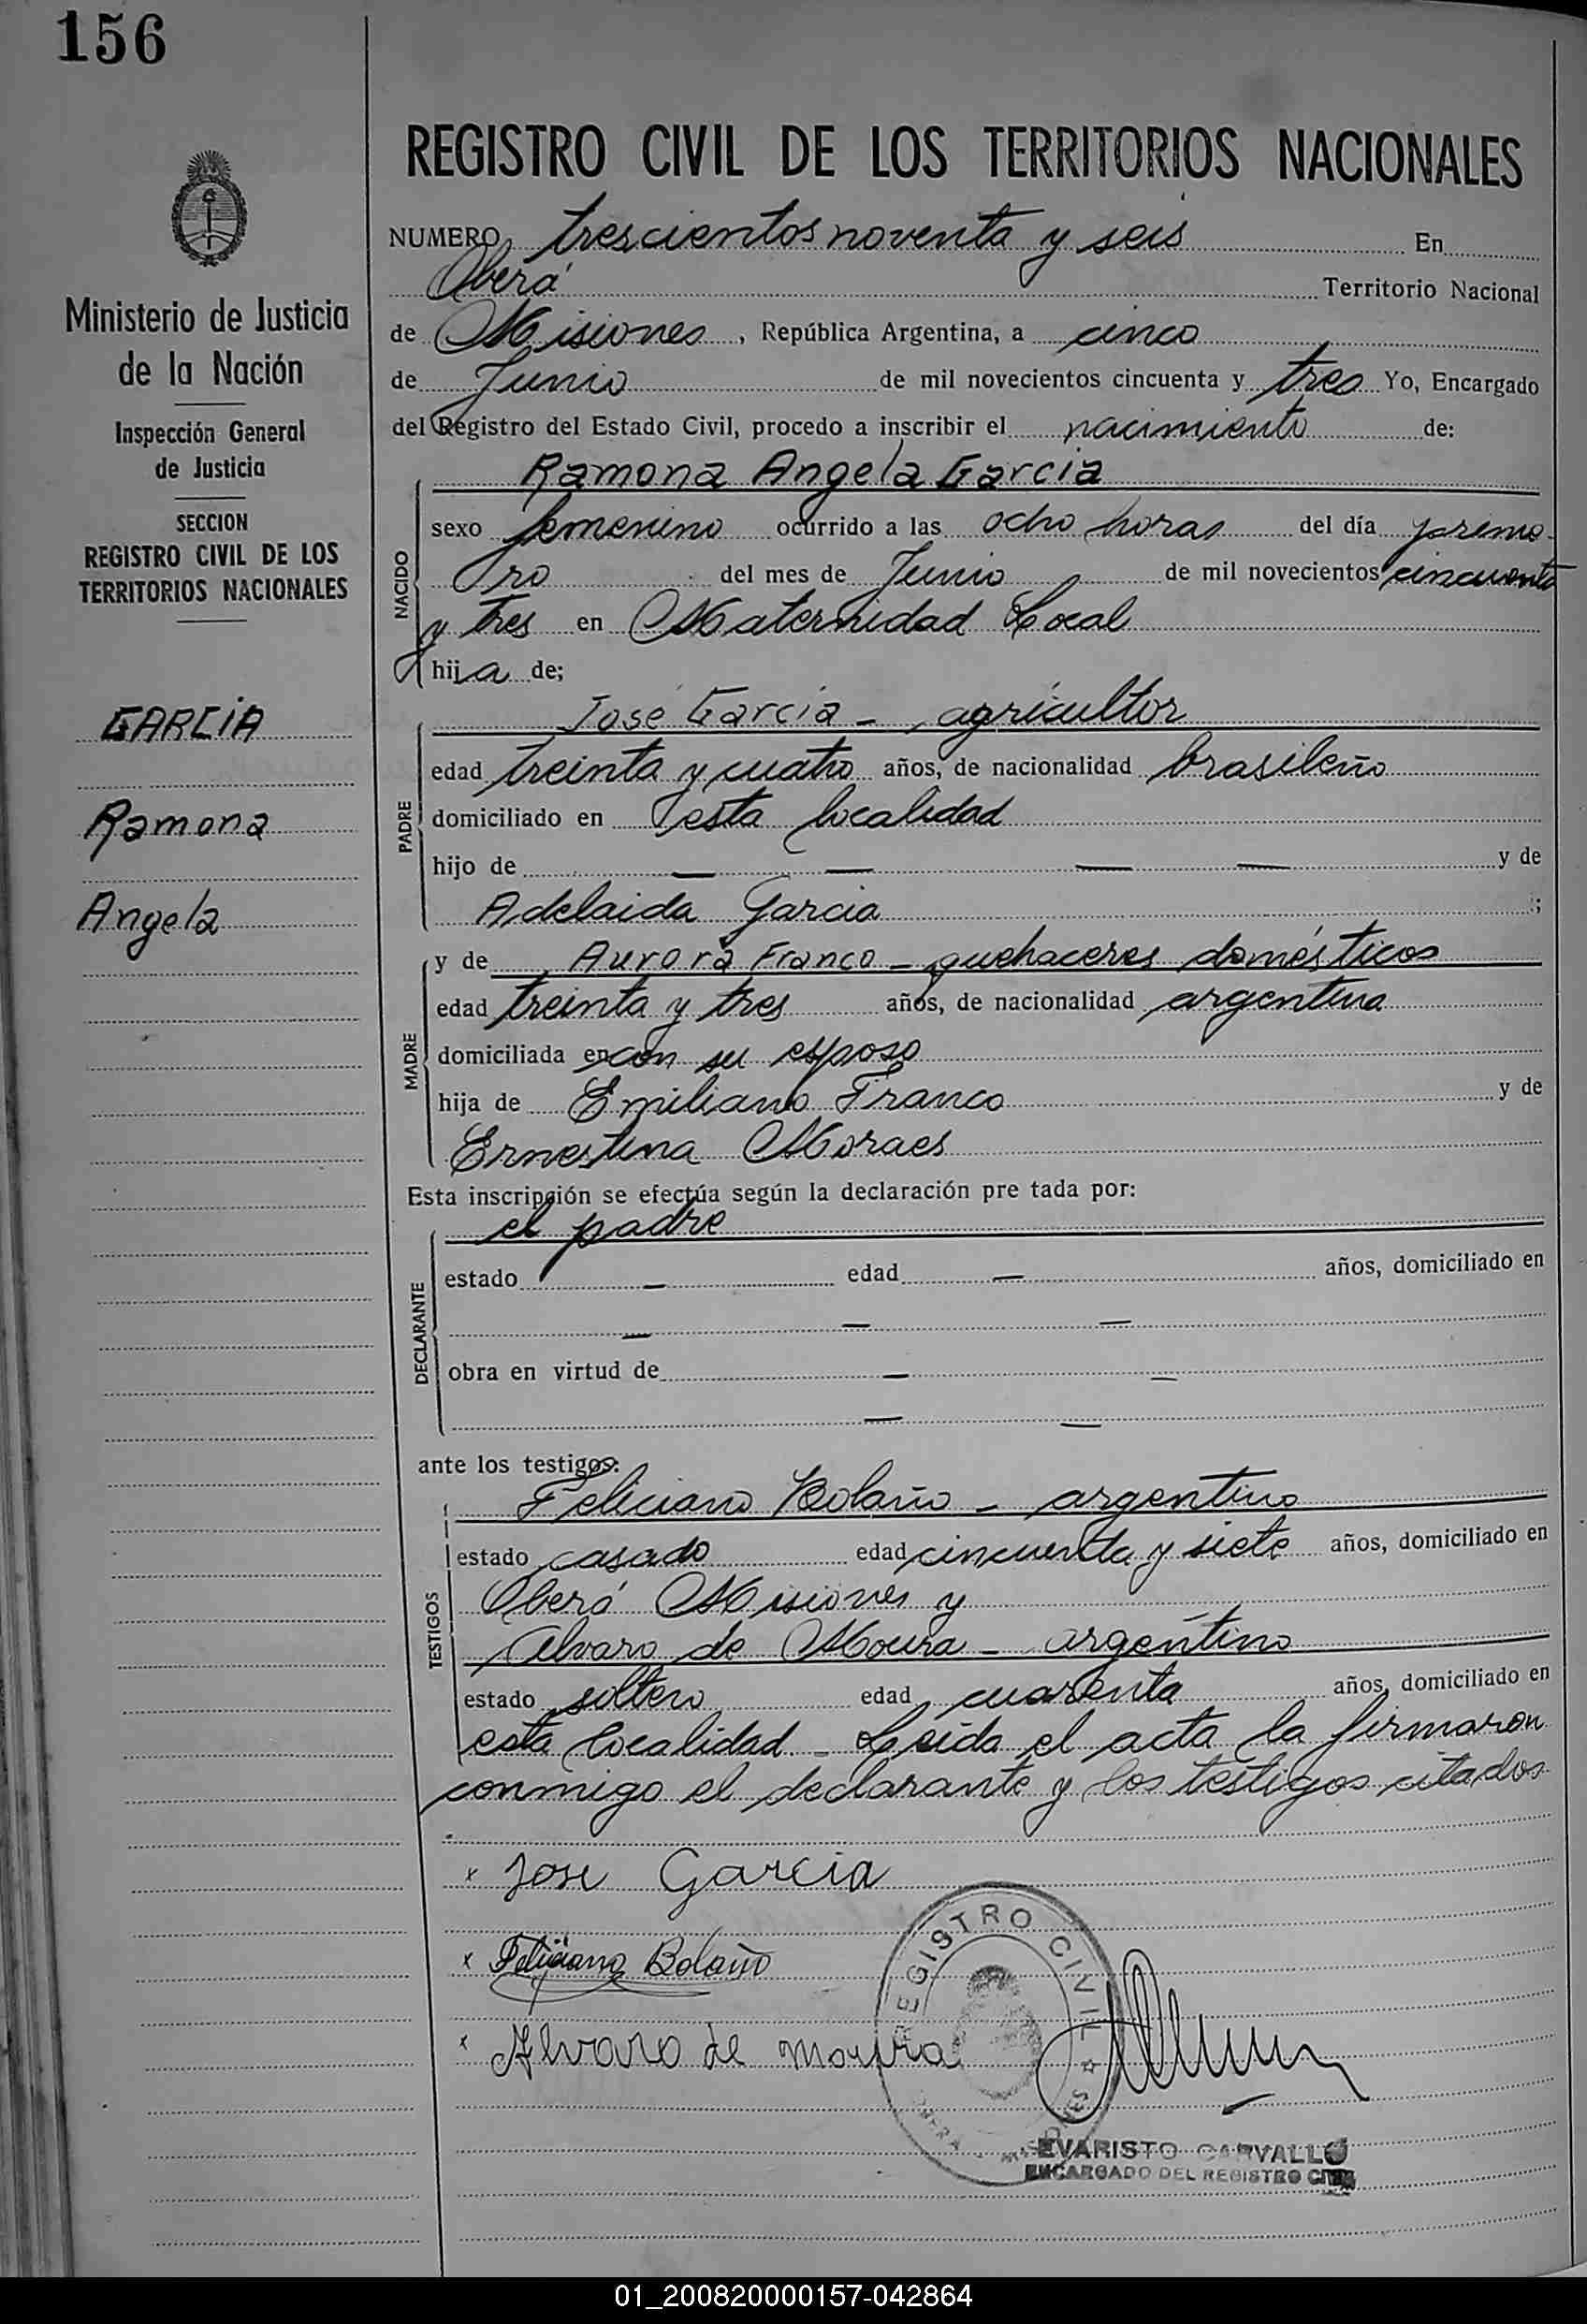 156
Ministerio de Justicia
de la Nación
Inspección General
de Justicia
SECCION
REGISTRO CIVIL DE LOS
TERRITORIOS NACIONALES
GARCIA
Ramona
Angela
REGISTRO CIVIL DE LOS TERRITORIOS NACIONALES
NUMERO trescientos noventa y seis En
Oberá Territorio Nacional
de Misiones, República Argentina, a cinco
de Junio de mil novecientos cincuenta y tres Yo, Encargado
del Registro del Estado Civil, procedo a inscribir el nacimiento de:
Ramona Angela Garcia
NACIDO
sexo femenino ocurrido a las ocho horas del día prime
ro del mes de Junio de mil novecientos cincuenta
y tres en Maternidad Local
hija de;
José García - agricultor
PADRE
edad treinta y cuatro años, de nacionalidad brasileño
domiciliado en esta localidad
hijo de — — — — y de
Adelaida Garcia ;
y de Aurora Franco - quehaceres domésticos
MADRE
edad treinta y tres años, de nacionalidad argentina
domiciliada en con su esposo
hija de Emiliano Franco y de
Ernestina Moraes
Esta inscripción se efectúa según la declaración pre tada por:
el padre
DECLARANTE
estado — edad — años, domiciliado en
— — —
obra en virtud de — —
— —
ante los testigos:
Feliciano Bolaño - argentino
TESTIGOS
estado casado edad cincuenta y siete años, domiciliado en
Oberá Misiones y
Alvaro de Moura - argentino
estado soltero edad cuarenta años, domiciliado en
esta localidad. - Leída el acta la firmaron
conmigo el declarante y los testigos citados
x Jose Garcia
x Feliciano Bolaño
x Alvaro de Moura
REGISTRO CIVIL
EVARISTO CARVALLO
ENCARGADO DEL REGISTRO CIVIL
01_200820000157-042864